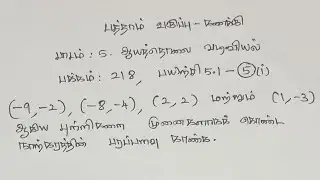 பத்தாம் வகுப்பு - கணக்கு
பாடம்: 5. ஆயத்தொலை வடிவியல்
பக்கம்: 218, பயிற்சி 5.1 - 5 (i)
(-9, -2), (-8, -4), (2, 2) மற்றும் (1, -3)
ஆகிய புள்ளிகளை முனைகளாகக் கொண்ட
நாற்கரத்தின் பரப்பளவு காண்க.